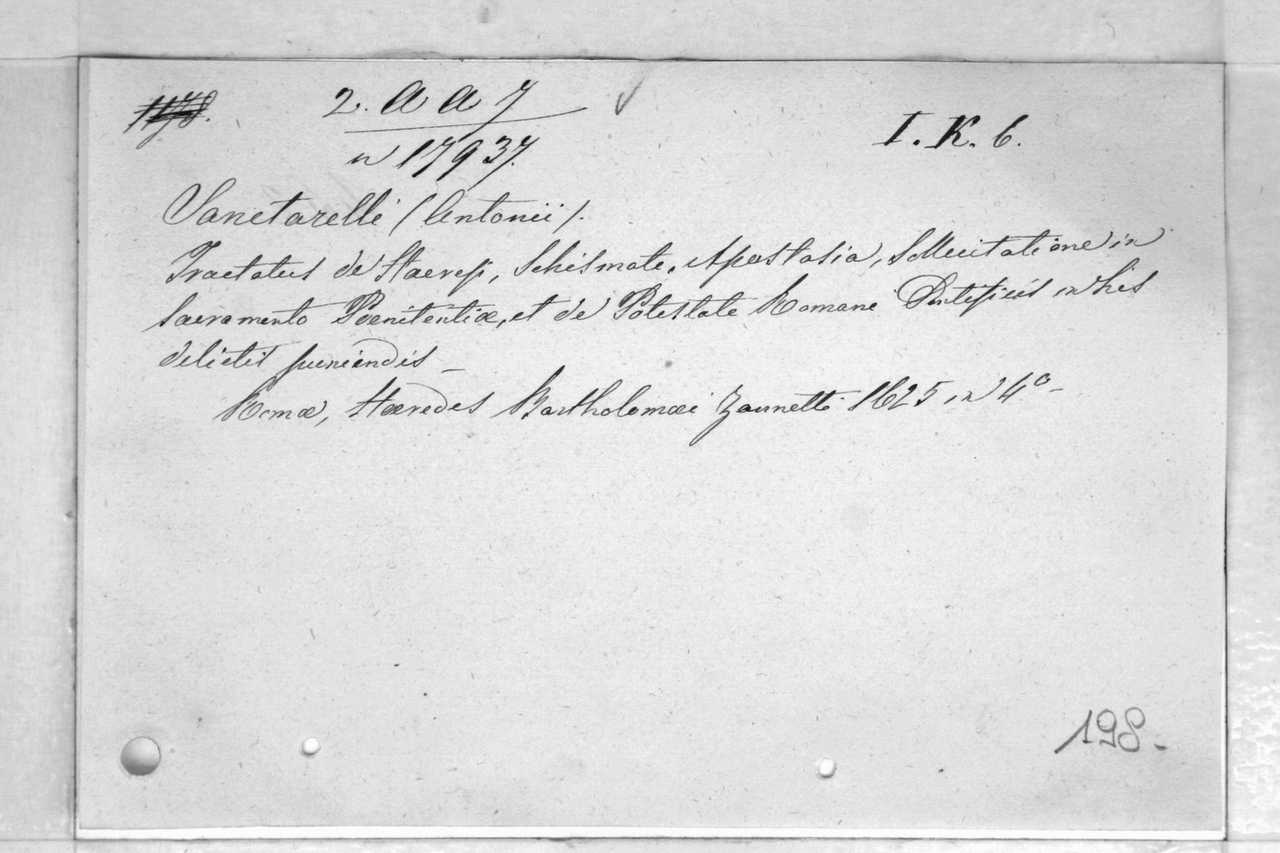 2. a a 7
I. K. 6.
n 17937.
Sanctarelli (Antonii).
Tractatus de Haeresi, Schismate, Apostasia, Sollicitatione in
Sacramento Poenitentiæ, et de Potestate Romani Pontificis in his
delictis puniendis _
Romæ, Hæredes Bartholomæi Zannetti 1625 in 4° _
198.